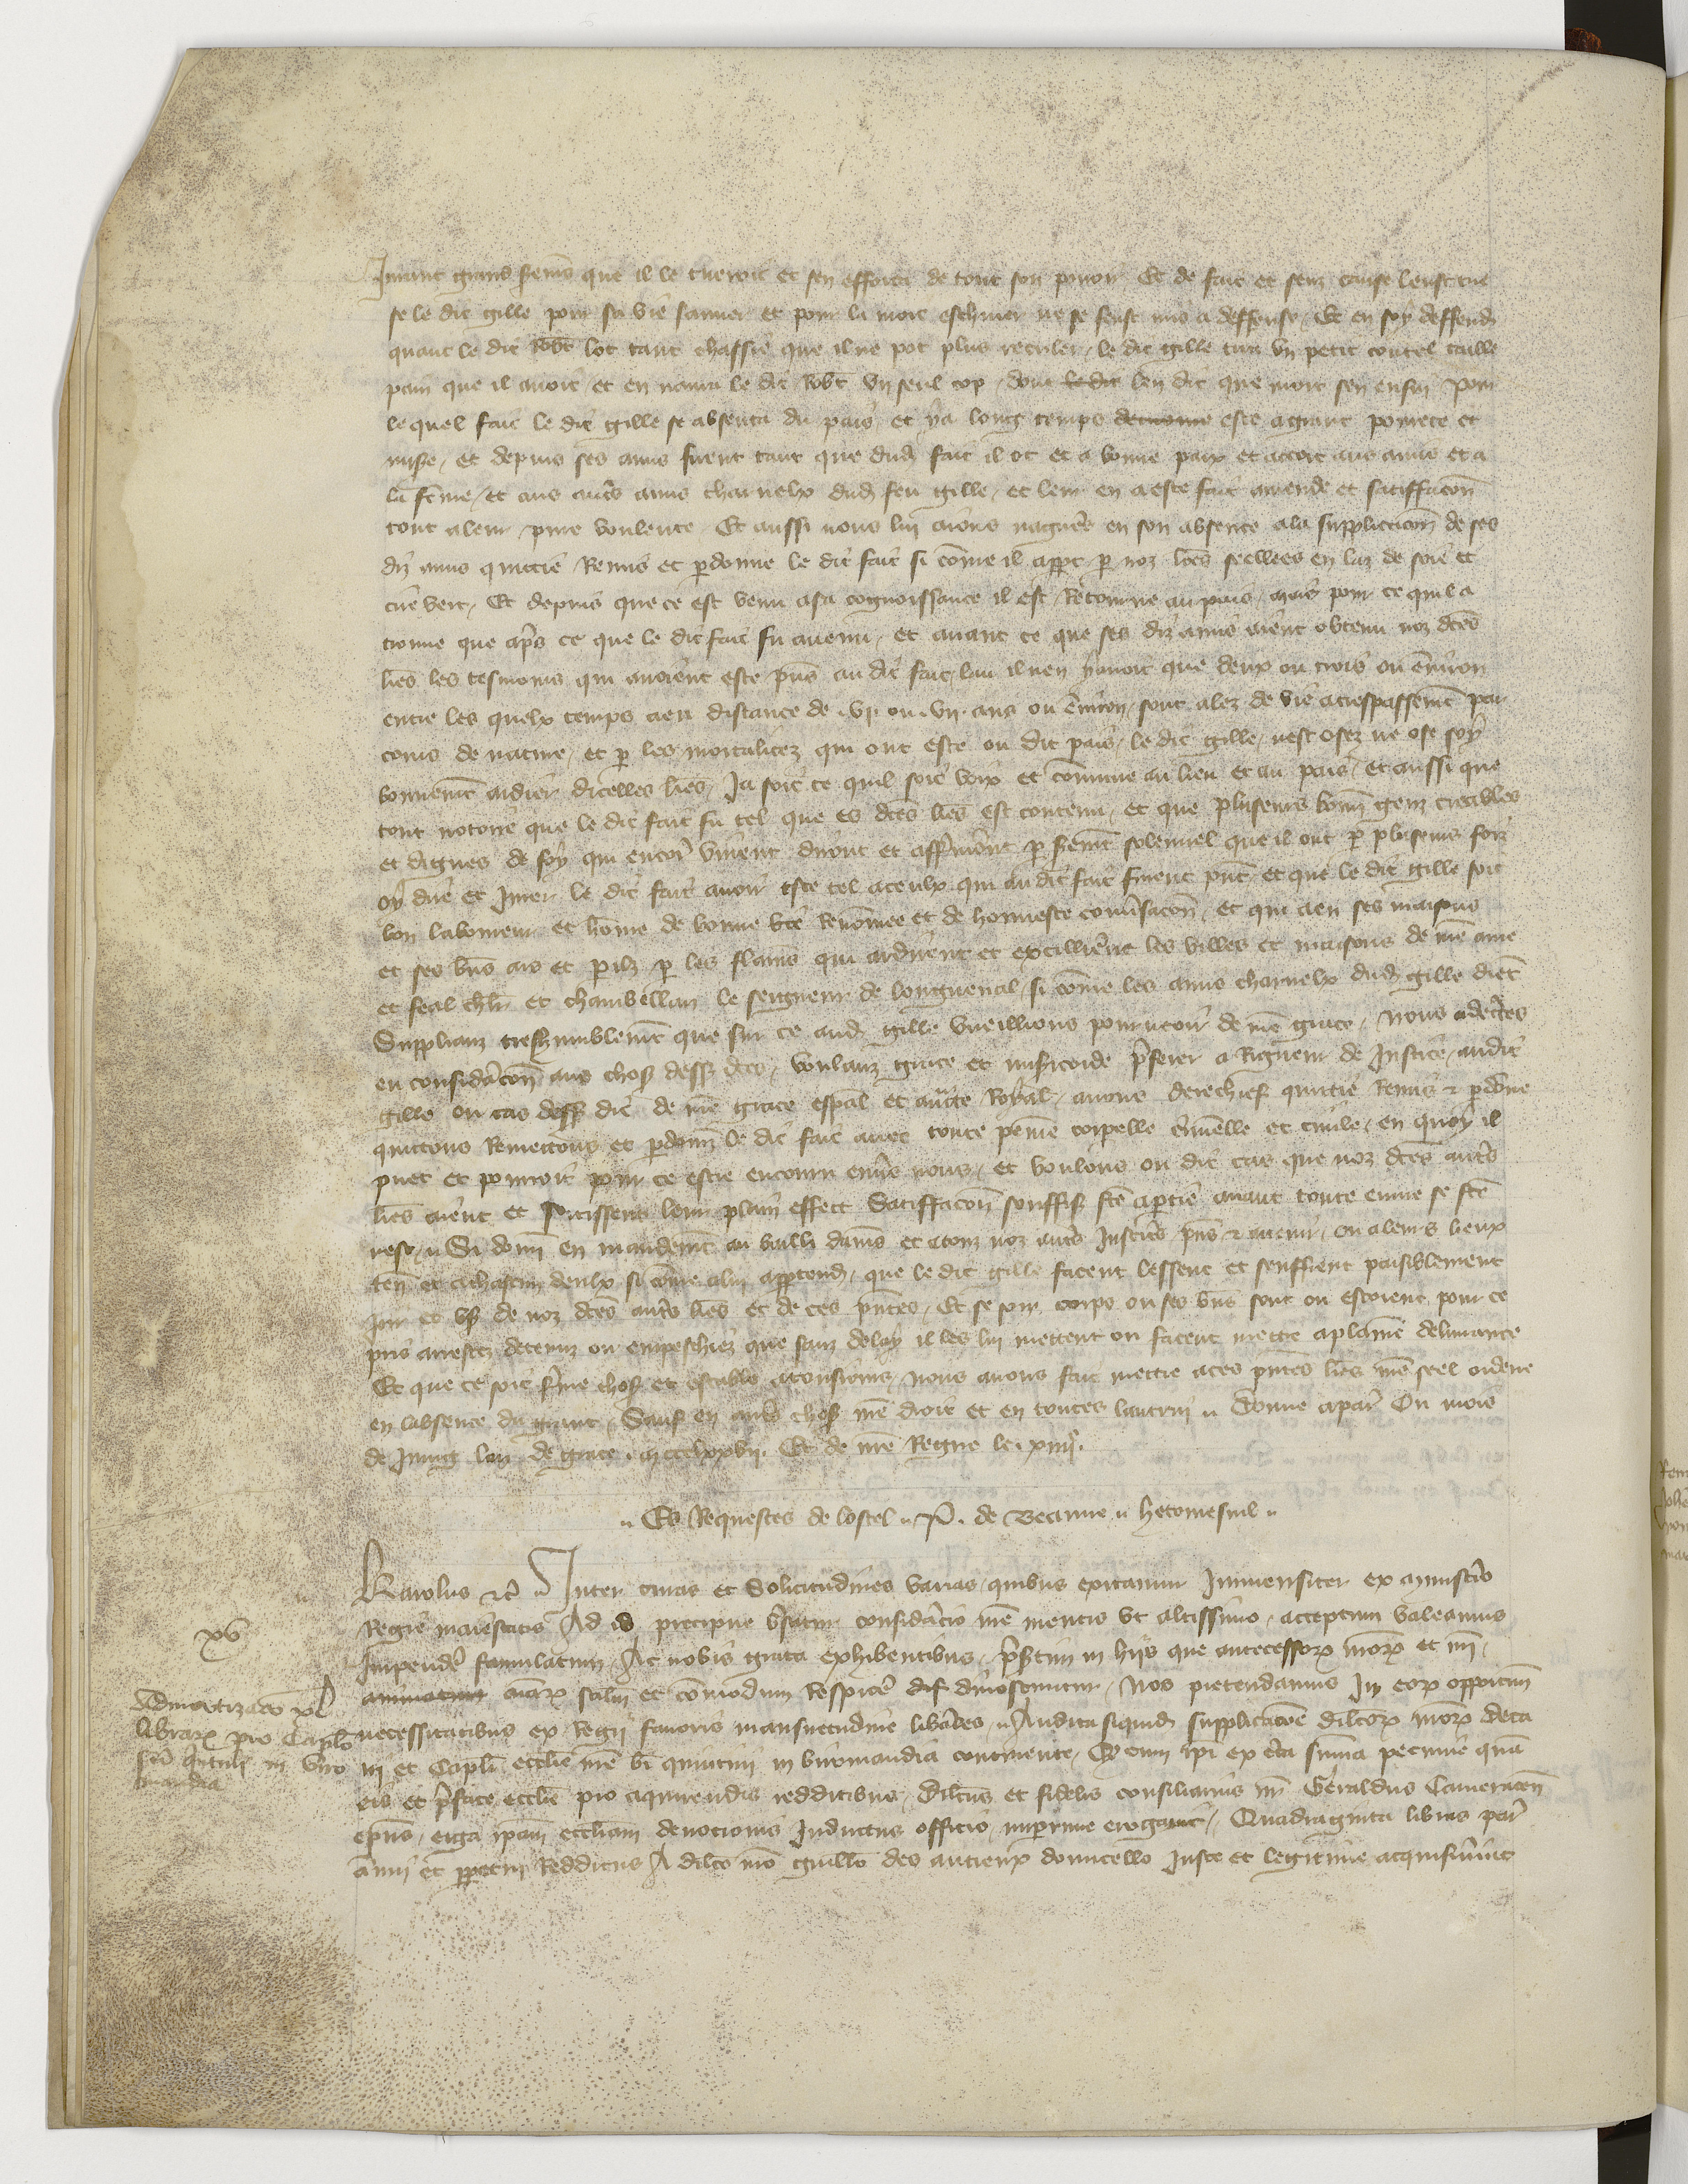 Jurant grans seremens que il le tueroit et sen efforca de tout son pouoir Et de fait et senz cause leust tue
se le dit gille pour sa vie sauuer et pour la mort eschiuer ne se feust mis a deffense / Et en soy deffend
quant le dit Robt lot tant chassie que il ne pot plus reculer / le dit gille tira vn petit coutel taille
pain que il auoit et en naura le dit Robt vn seul cop dont le dit len dit que mort sen ensui Pour
lequel fait le dit gille se absenta du pais et y a lonc temps demoure este a grant pourete et
misere / et depuis ses amis furent tant que dud fait il ot et a bonne paix et accort aus amis et a
la feme / et aus autres amis charnelx dud feu gille / et leur en a este fait amende et satiffacon
tout a leur pure voulente Et aussi nous lui auons naguere en son absence a la supplicacion de ses
diz amis quictie Remis et pardonne le dit fait si come il appt par noz lres seellees en laz de soie et
cire vert / Et depuis que ce est venu a sa cognoissance il est Retourne au pais / mais pour ce quil a
trouue que apres ce que le dit fait fu auenu / et auant ce que ses diz amis aient obtenu noz dces
lres les tesmoins qui auoient este pns au dit fait / lau il nen y auoit que deux ou trois ou enuiron
entre les quelx temps a eu distance de .vj. ou .vij. ans ou enuiron / sont alez de vie a trespassement par
cours de nature / et par les mortalitez qui ont este ou dit pais / le dit gille nest osez ne ose soy
bonnement aidier dicelles lres / Ja soit ce quil soit voix et comune au lieu et au pais / et aussi que
tout notoire que le dit fait fu tel que es dces lres est contenu / et que pluseurs bonn genz creables
et dignes de foy qui encor viuent diront et affermeront par serement solennel que il ont par pluseurs foiz
oy dire et Jurer le dit fait auoir este tel a ceulx qui au dit fait furent pnt et que le dit gille soit
bon laboureur et home de bonne vie Renommee et de honneste conuersacon / et qui a eu ses maisons
et ses biens ars et perilz par les flamens qui ardirent et exillierent les villes et maisons de nre ame
et feal chlr et chambellan le seigneur de longueual / si come les amis charnelx dud gille dient
Suppliant treshumblement que sur ce aud gille vueillions pourueoir de nre grace / Nous adecertes
en consideracon aus choses dess dces / voulanz grace et misericorde preferer a Rigueur de Justice / audit
gille ou cas dess dit de nre grace espal et aucte Royal / auons derechief quittie Remis et pardone
quittons Remettons et pardonn le dit fait auec toute peine corpelle criminelle et ciuile / en quoy il
puet et pourroit pour ce estre encouru enuers nous / et voulons ou dit cas que noz dces autres
lres aient et sortissent leur plain effect Satiffacon souffise fte a partie auant toute euure se fte
nest / Si donn en mandement au bailli damiens et a touz noz autres Justiciers pns & auenir ou a leurs lieux
ten et a chascun deulx si come a lui appartendra / que le dit gille facent lessent et seuffrent paisiblement
joir et vser de noz dces autres lres et de ces pntes / Et se son corps ou ses biens sont ou estoient pour ce
pris arrestez detenuz ou empeschiez que sanz delay il les lui mettent ou facent mettre a plaine deliurance
Et que ce soit ferme chose et estable a tousiours / Nous auons fait mettre a ces pntes lres nre seel ordene
en labsence du grant / Sauf en autres choses nre droit et en toutes lautrui / Donne a Paris Ou mois
de Juing lan de grace . m ccclxxvij. Et de nre Regne le . xiiije.
Es Requestes de lostel / P. de Veanne / hetomesnil
Karolus etc Inter curas et Solicitudines varias quibus excitamur Immensiter ex amministris
Regie maiestatis Ad id precipue versatur consideracio nre mentis vt altissimo acceptum valeamus
Impendere famulatum / Ac nobis grata exhibentibus / presertim in hiis que antecessorum nostrorum et nri
animarum aiarum salutem et comodum Respicere dif dinoscuntur / Nos pretendamus In eorum opportum
necessitatibus ex Regij fauoris mansuetudine liberales / Audita siquid supplicacione dilcorum nostrorum deca
ni et Capli ecclie nre bi quintini in viromandia continente / Qd cum ipi ex certa suma pecunie quam
eis et prefate ecclie pro aquirendis redditibus / Dilcus et fidelis consiliarius nr Geraldus Cameracen
epus / erga ipam eccliam deuotionis Inductus officio / nuperime erogauit / Quadraginta libras par
annui et perpetui Redditus A dilco nro Guillo des autieux domicello Juste et legitime acquisiuerint
xv
Admortizacio xl
librarum pro Caplo
sci quintini in viro
mandia